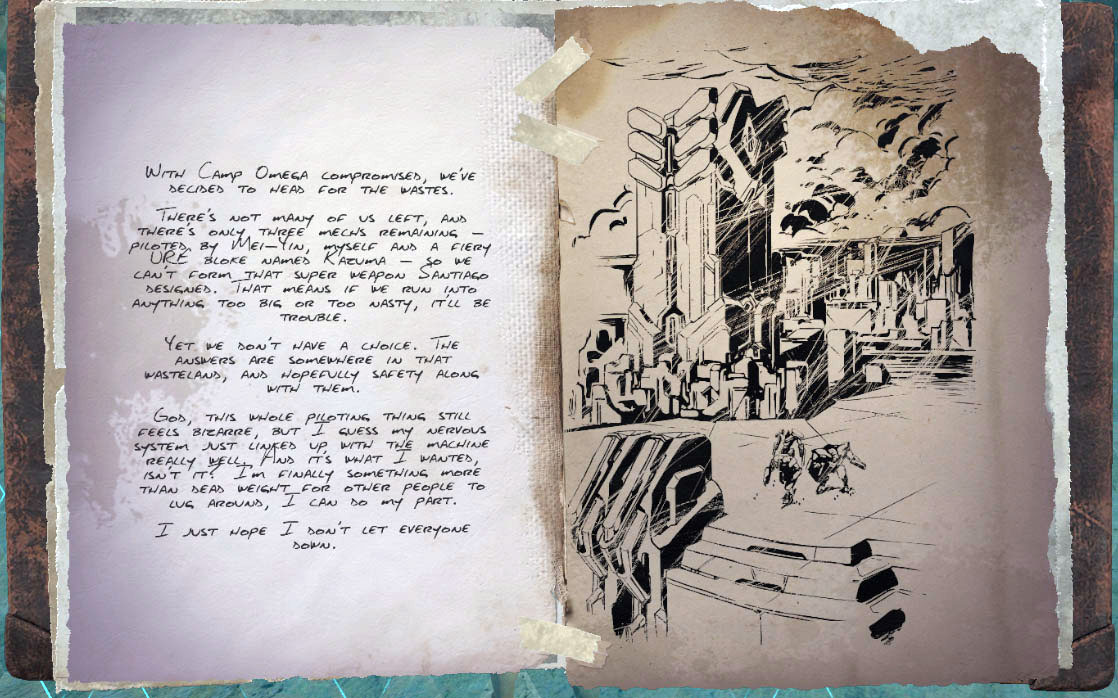 With Camp Omega compromised, we've
decided to head for the wastes.
There's not many of us left, and
there's only three mechs remaining –
piloted by Mei-Yin, myself and a fiery
URE bloke named Kazuma – so we
can't form that super weapon Santiago
designed. That means if we run into
anything too big or too nasty, it'll be
trouble.
Yet we don't have a choice. The
answers are somewhere in that
wasteland, and hopefully safety along
with them.
God, this whole piloting thing still
feels bizarre, but I guess my nervous
system just linked up with the machine
really well. And it's what I wanted,
isn't it? I'm finally something more
than dead weight for other people to
lug around, I can do my part.
I just hope I don't let everyone
down.